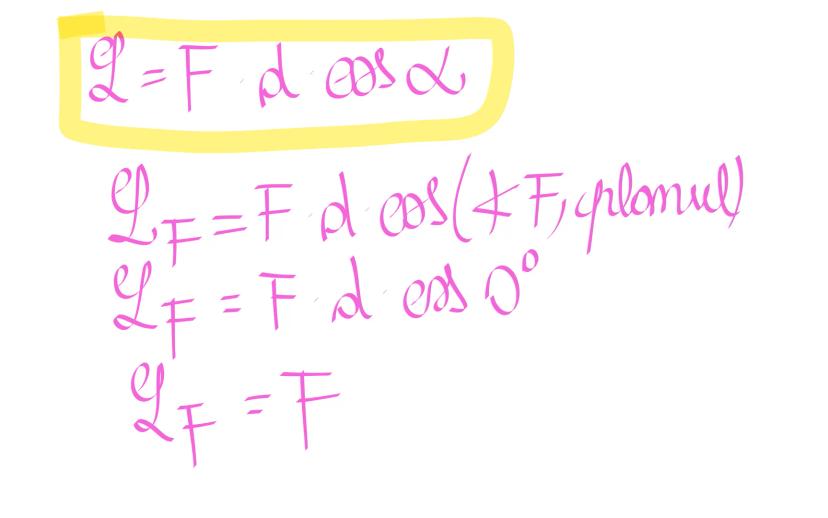 L = F · d · cos α
L_F = F · d · cos(∢ F, planul)
L_F = F · d · cos 0°
L_F = F